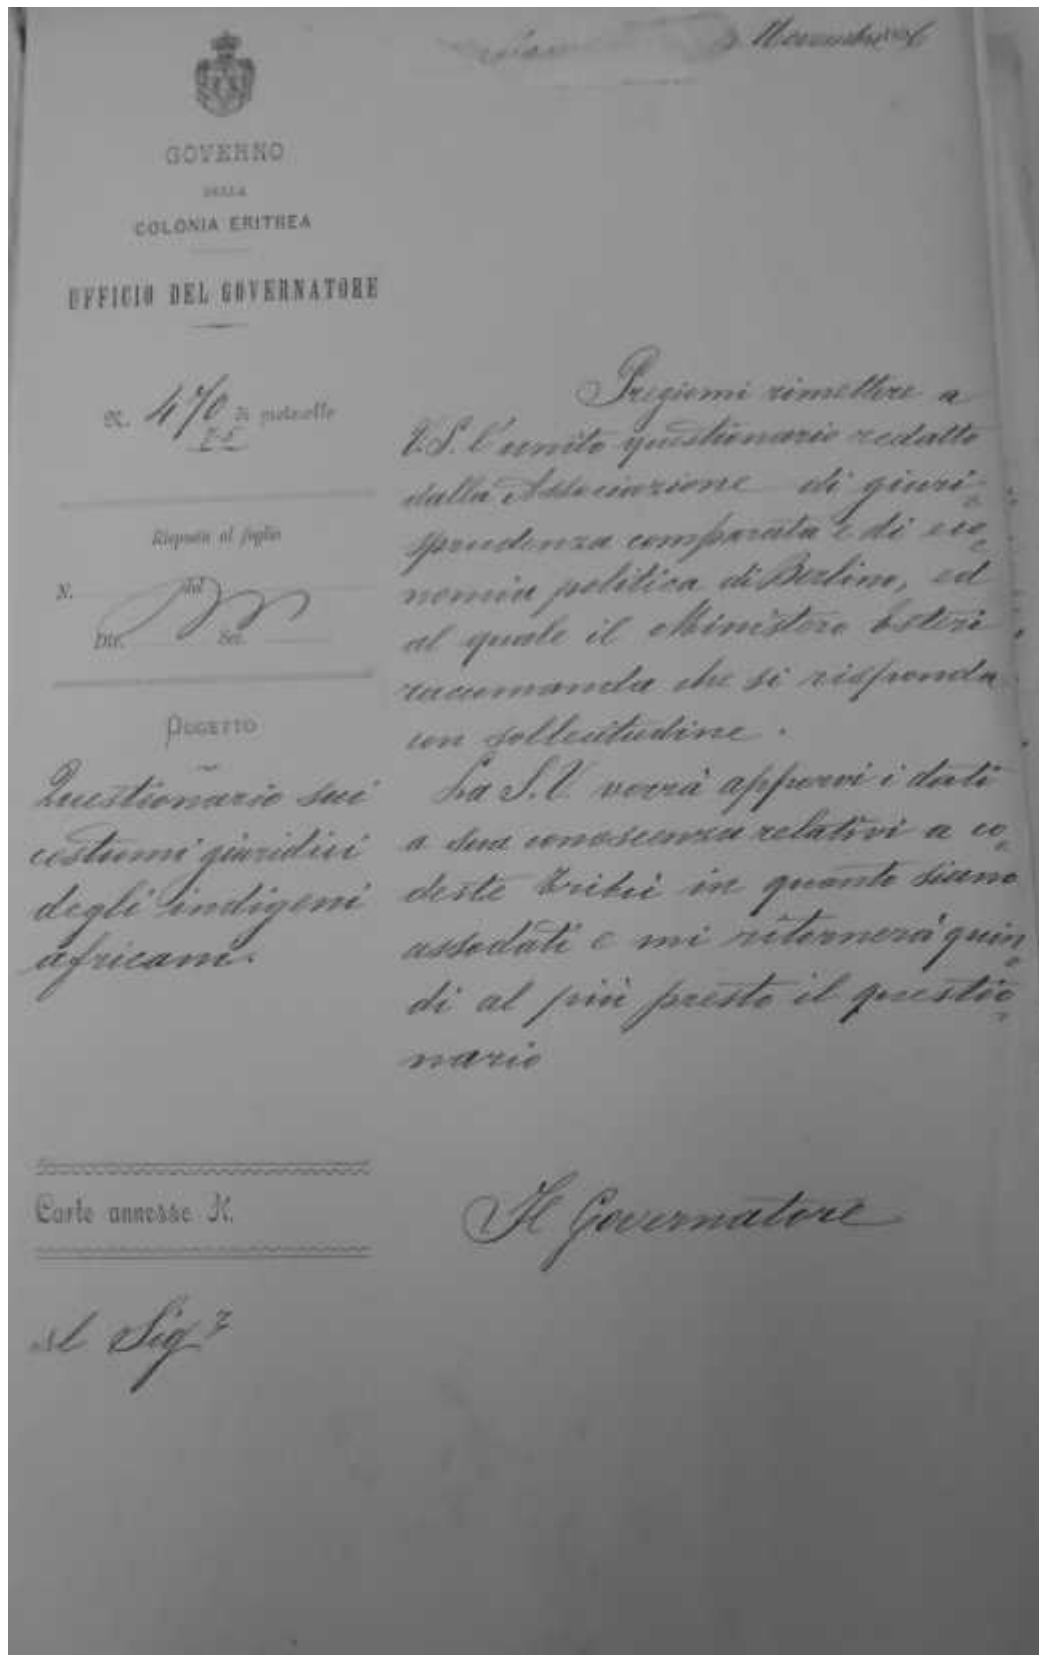 Novembre
GOVERNO
DELLA
COLONIA ERITREA
UFFICIO DEL GOVERNATORE
N. 470 di protocollo
Risposta al foglio
N. del
Div. Sez.
OGGETTO
Questionario sui
costumi giuridici
degli indigeni
africani.
Carte annesse N.
Al Sigr
Pregiomi rimettere a
V.S. l'unito questionario redatto
dalla Associazione di giuri-
sprudenza comparata e di eco-
nomia politica di Berlino, ed
al quale il Ministero Esteri
raccomanda che si risponda
con sollecitudine.
La S.V. vorrà apporvi i dati
a sua conoscenza relativi a co-
deste tribù in quanto siano
assodati e mi ritornerà quin-
di al più presto il questio-
nario
Il Governatore